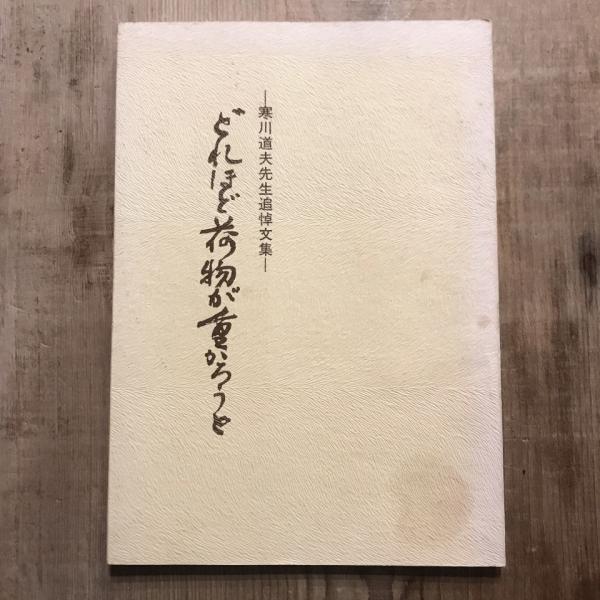 ―寒川道夫先生追悼文集―
どれほど荷物が重かろうと